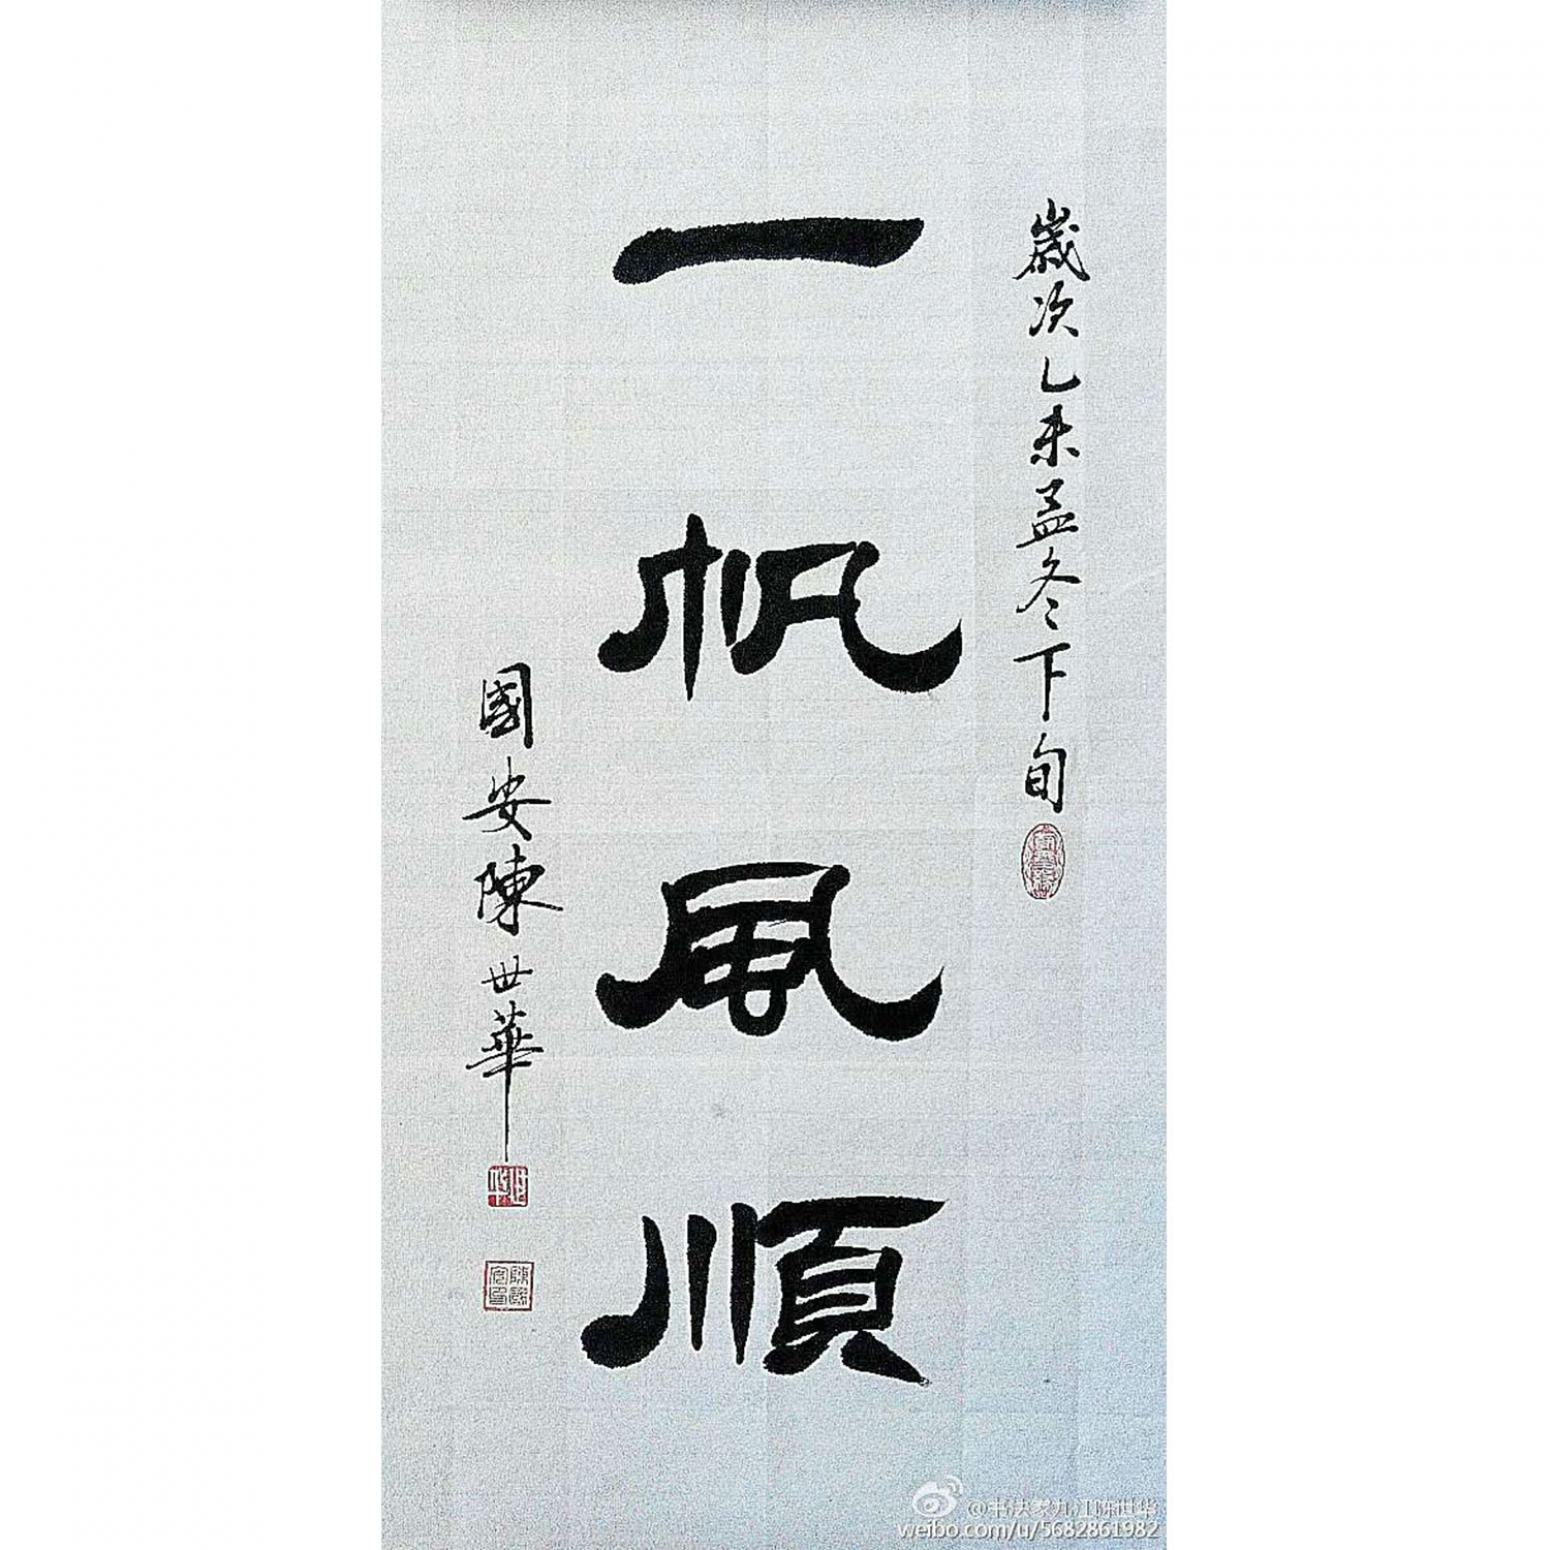 歲次乙未孟冬下旬
一帆風順
國安陳世華
世華
@书法家九江陈世华
weibo.com/u/5682861982